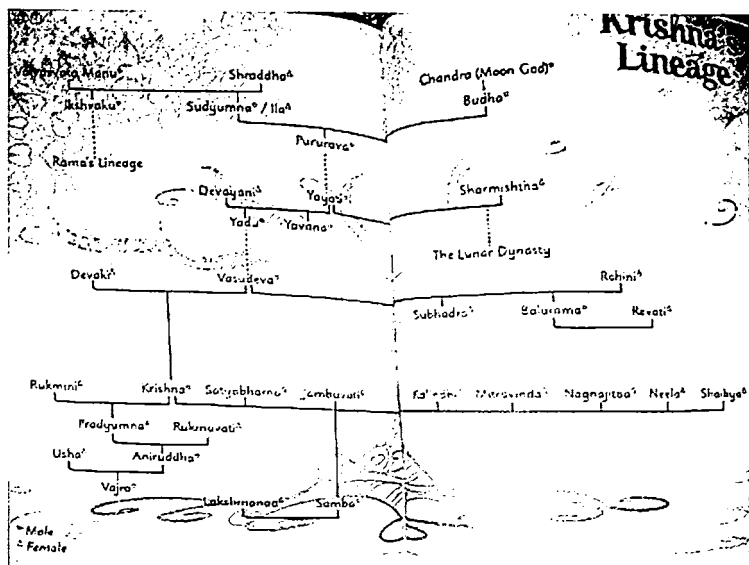 Krishna's
Lineage
Vaivasvata Manu Shraddha Chandra (Moon God)
Ikshvaku Sudyumna / Ila Budha
Pururava
Rama's Lineage
Devayani Yayati Sharmishtha
Yadu Yavana
The Lunar Dynasty
Devaki Vasudeva Rohini
Subhadra Balarama Revati
Rukmini Krishna Satyabhama Jambavati Kalindi Mitravinda Nagnajitaa Neela Shaibya
Pradyumna Rukmavati
Usha Aniruddha
Vajra
Lakshmanaa Samba
Male
Female